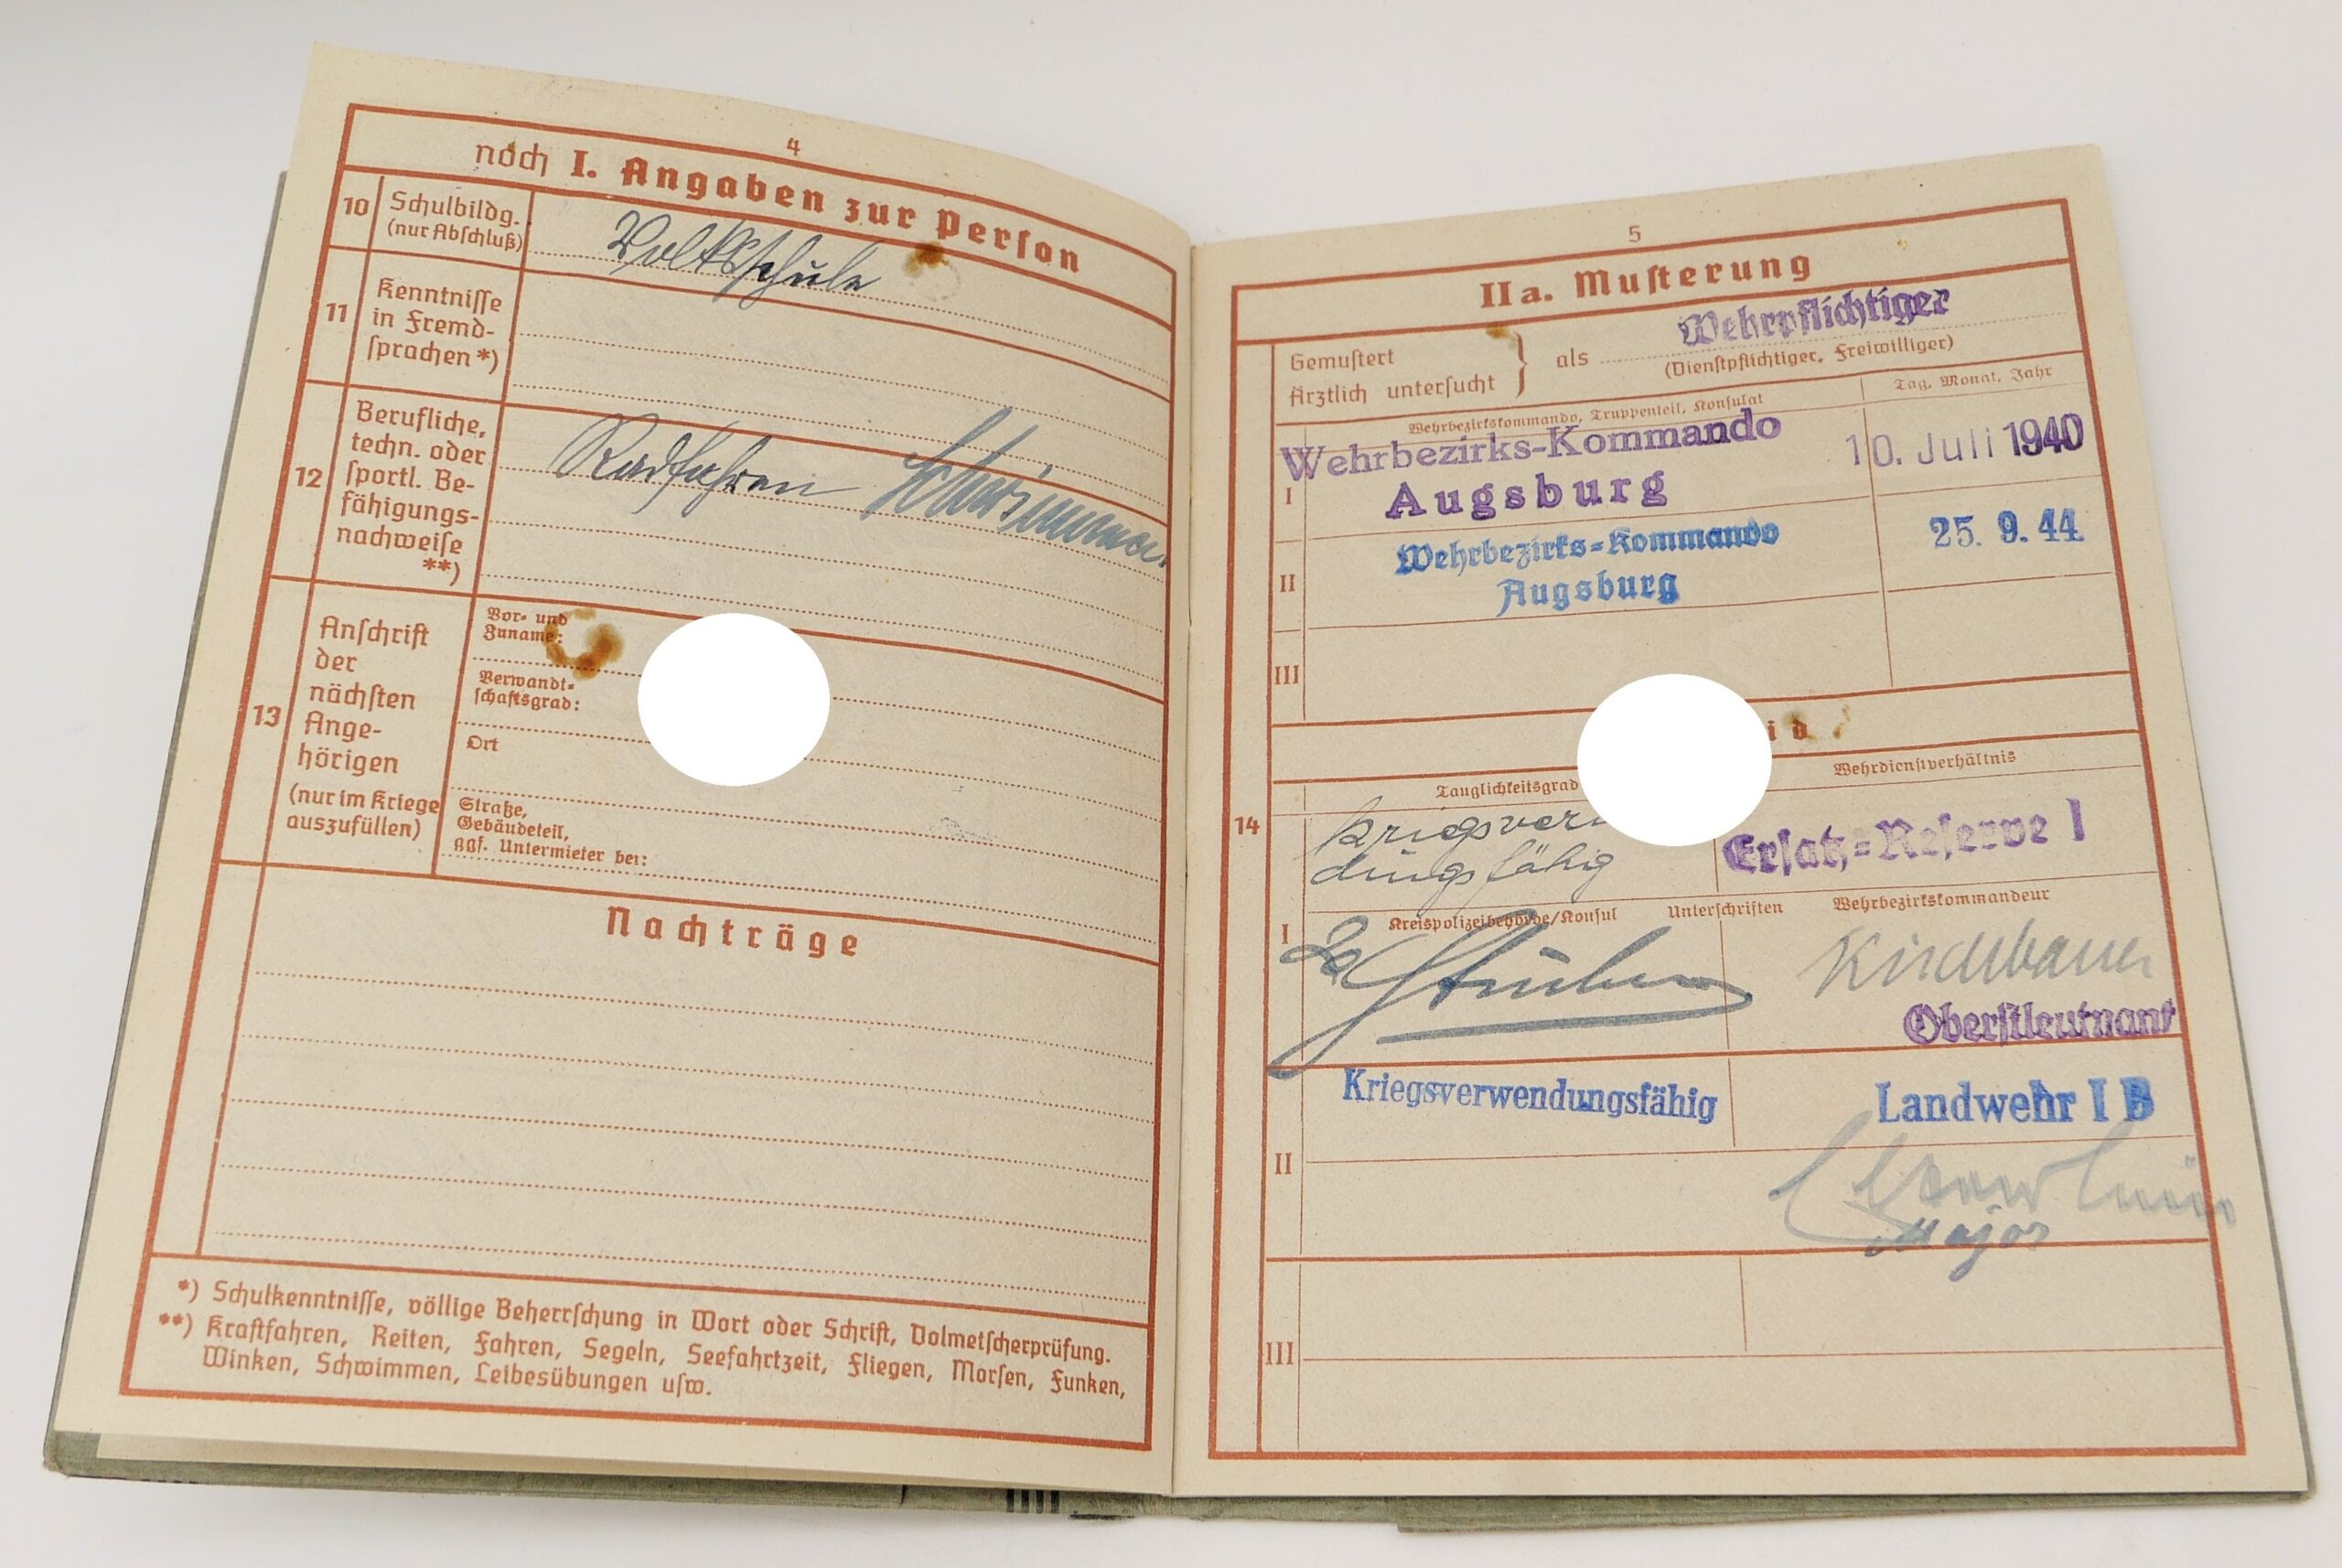 4
noch I. Angaben zur Person
10
Schulbildg.
(nur Abschluß)
Volksschule
11
Kenntnisse
in Fremd-
sprachen *)
12
Berufliche,
techn. oder
sportl. Be-
fähigungs-
nachweise
**)
Radfahren Schwimmen
13
Anschrift
der
nächsten
Ange-
hörigen
(nur im Kriege
auszufüllen)
Vor- und
Zuname:
Verwandt-
schaftsgrad:
Ort
Straße,
Gebäudeteil,
ggf. Untermieter bei:
Nachträge
*) Schulkenntnisse, völlige Beherrschung in Wort oder Schrift, Dolmetscherprüfung.
**) Kraftfahren, Reiten, Fahren, Segeln, Seefahrtzeit, Fliegen, Morsen, Funken,
Winken, Schwimmen, Leibesübungen usw.
5
IIa. Musterung
Gemustert
Ärztlich untersucht
} als
Wehrpflichtiger
(Dienstpflichtiger, Freiwilliger)
Wehrbezirkskommando, Truppenteil, Konsulat
Tag, Monat, Jahr
I
Wehrbezirks-Kommando
Augsburg
10. Juli 1940
II
Wehrbezirks-Kommando
Augsburg
25. 9. 44.
III
id
14
Tauglichkeitsgrad
Wehrdienstverhältnis
kriegsver
dungsfähig
Ersatz-Reserve I
I
Kreispolizeibehörde/Konsul
Unterschriften
Wehrbezirkskommandeur
Oberstleutnant
II
Kriegsverwendungsfähig
Landwehr I B
Major
III